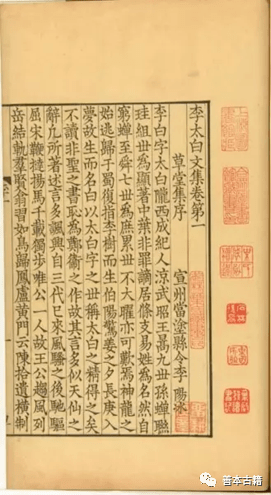 李太白文集卷第一
草堂集序
宣州當塗縣令李陽冰
李白字太白隴西成紀人涼武昭王暠九世孫蟬聯
珪組世為顯著中葉非罪謫居條支易姓為名然自
窮蟬至舜七世為庶累世不大曜亦可歎焉神龍之
始逃歸于蜀復指李樹而生伯陽驚姜之夕長庚入
夢故生而名白以太白字之世稱太白之精得之矣
不讀非聖之書恥為鄭衛之作故其言多似天仙之
辭凡所著述言多諷興自三代已來風騷之後馳驅
屈宋鞭撻揚馬千載獨步唯公一人故王公趨風列
岳結軌羣賢翕習如鳥歸鳳盧黃門云陳拾遺橫制
善本古籍